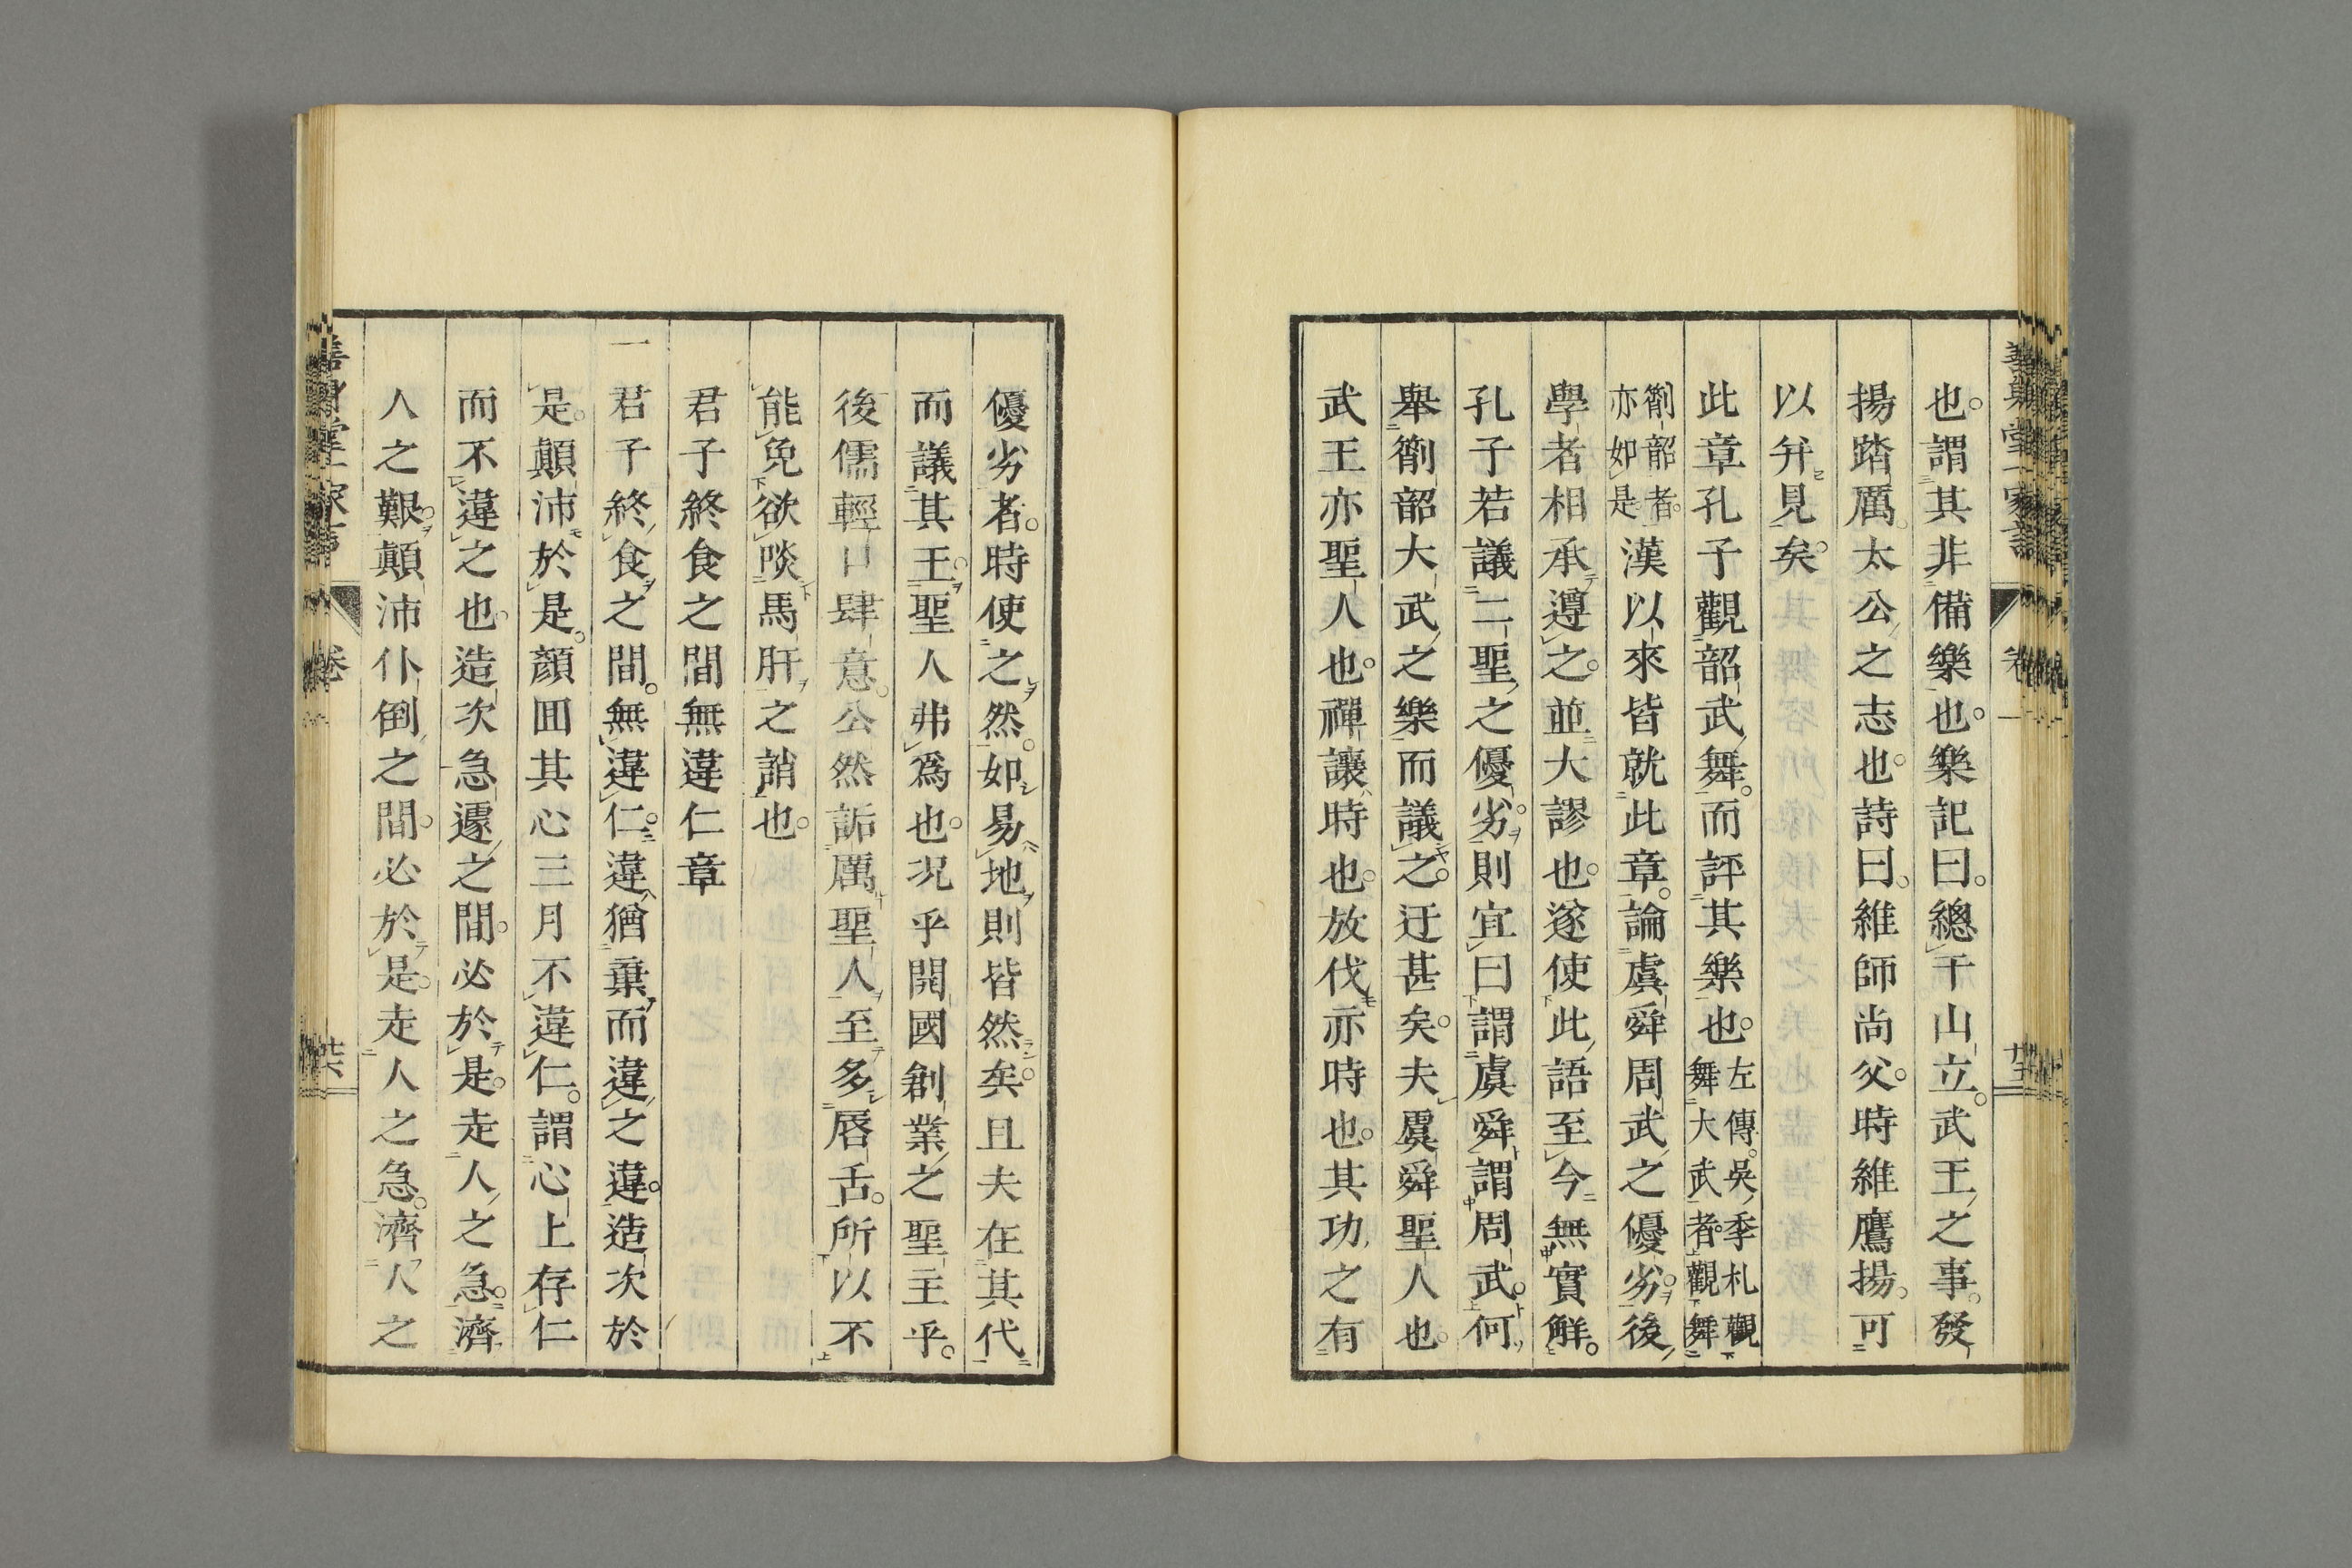 也。謂其非備樂也。樂記曰。總干山立。武王之事。發
揚踏厲。太公之志也。詩曰。維師尚父。時維鷹揚。可
以幷見矣。
此章孔子觀韶武舞。而評其樂也。左傳。吳季札觀
舞大武者。觀舞
韶箾者。亦如是。漢以來皆就此章。論虞舜周武之優劣。後
學者相承遵之。並大謬也。遂使此語至今無實解。
孔子若議二聖之優劣。則宜曰謂虞舜謂周武。何
舉箾韶大武之樂而議之。迂甚矣。夫虞舜聖人也。
武王亦聖人也。禪讓時也。放伐亦時也。其功之有
優劣者。時使之然。如易地則皆然矣。且夫在其代
而議其王。聖人弗爲也。況乎開國創業之聖主乎。
後儒輕口肆意。公然詬厲聖人。至多唇舌。所以不
能免欲啖馬肝之誚也。
君子終食之間無違仁章
一君子終食之間。無違仁。違猶棄而違之違。造次於
是。顛沛於是。顏回其心三月不違仁。謂心上存仁
而不違之也。造次急遽之間。必於是。走人之急。濟
人之艱。顛沛仆倒之間。必於是。走人之急。濟人之